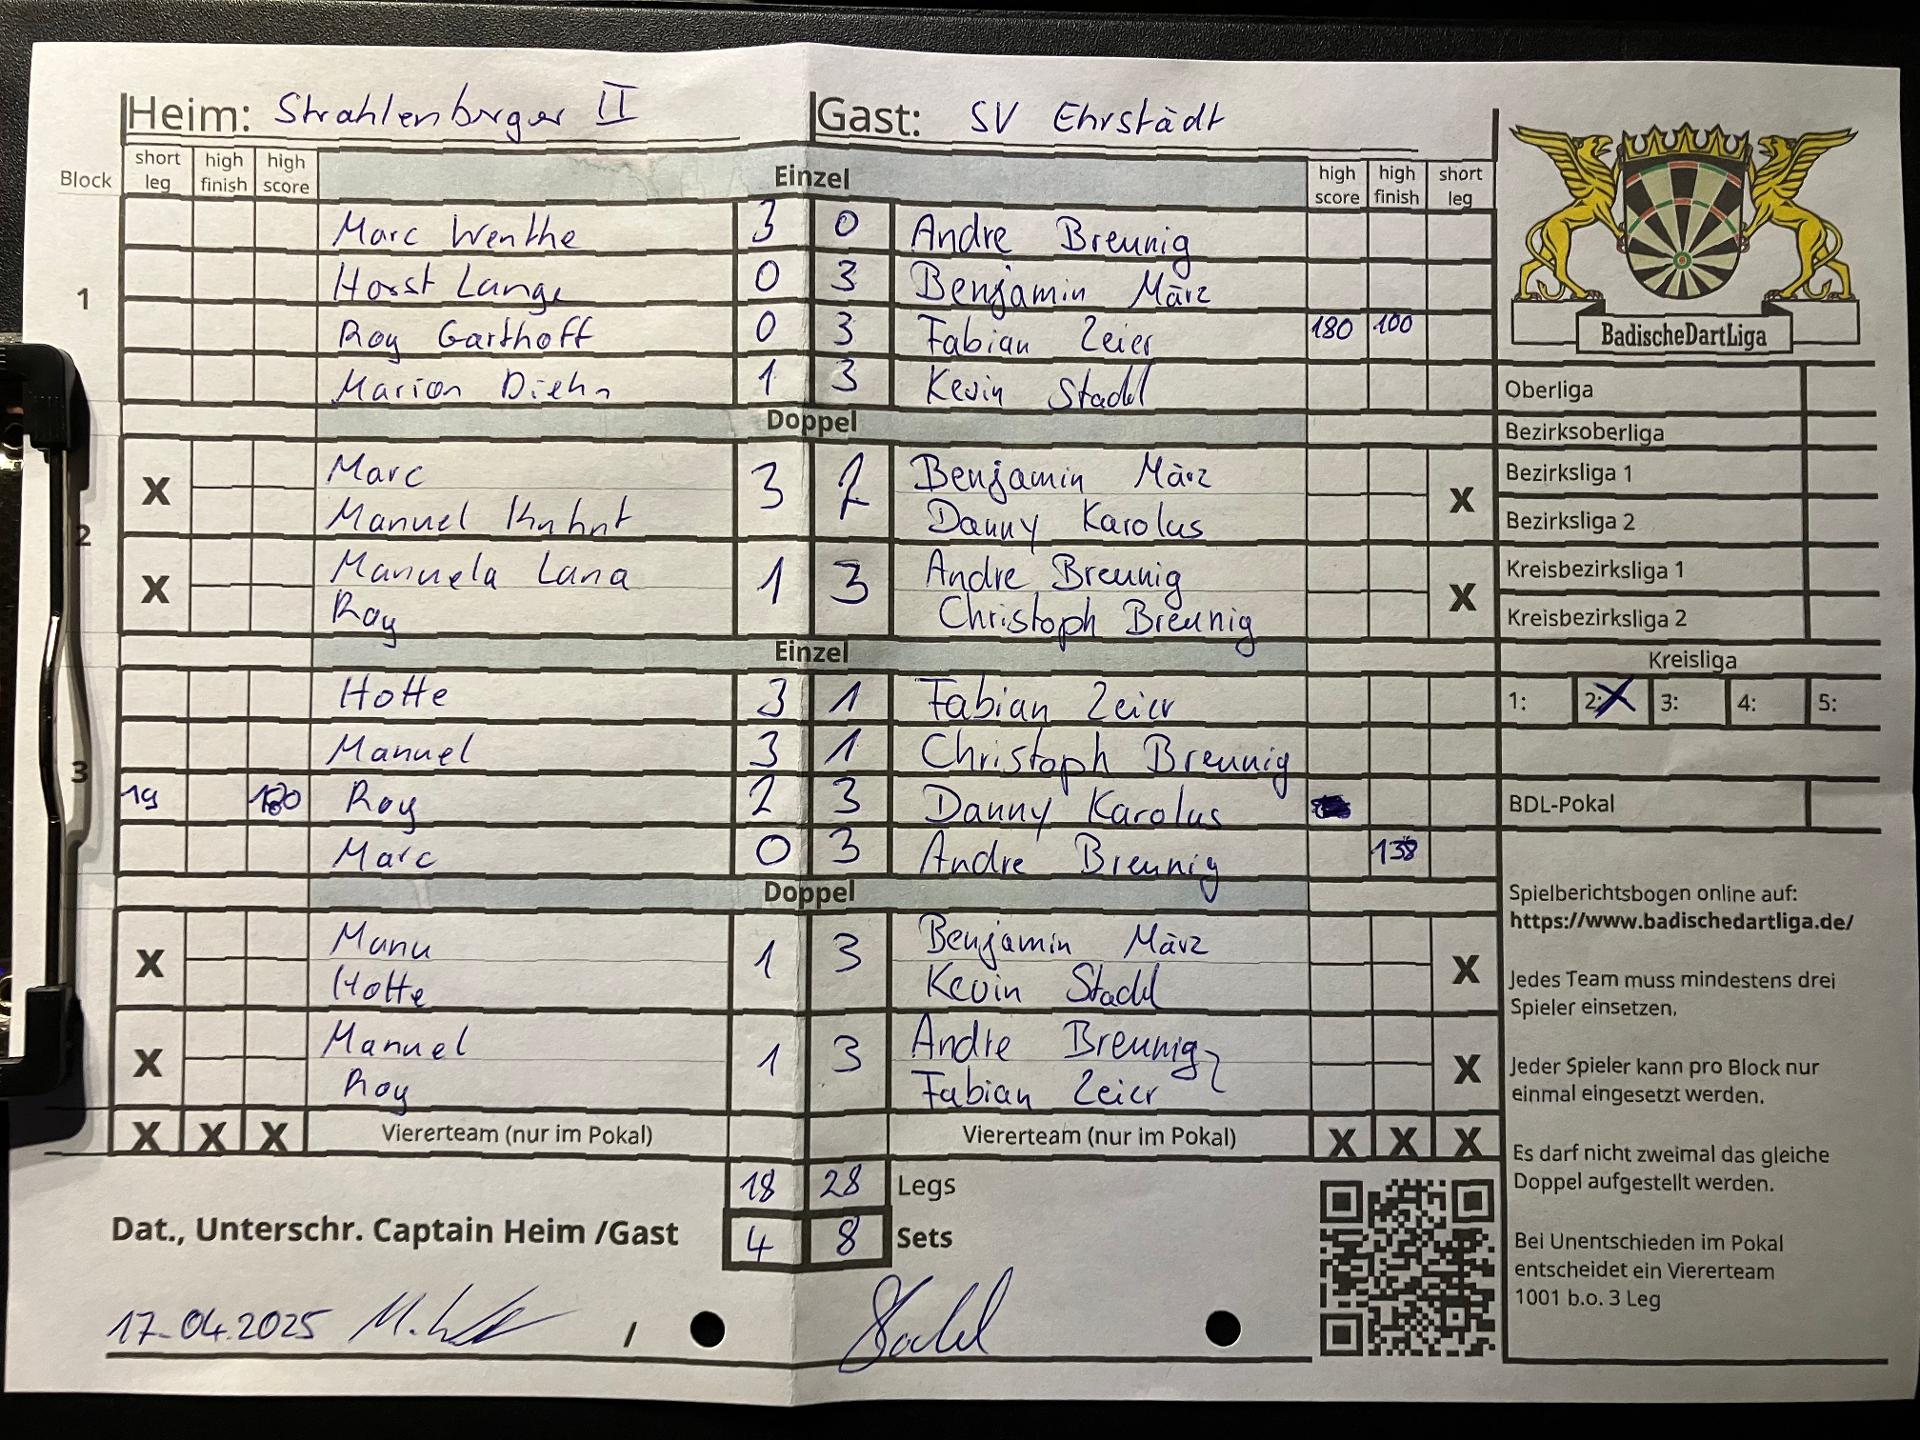 Heim: Strahlenberger II Gast: SV Ehrstädt
Block short leg high finish high score Einzel high score high finish short leg
Marc Wenthe 3 0 Andre Breunig
1 Horst Lange 0 3 Benjamin März
Roy Garthoff 0 3 Fabian Zeier 180 100
Marion Diehn 1 3 Kevin Stadl
Doppel
X Marc 3 2 Benjamin März X
Manuel Kuhnt Danny Karolus
2
X Manuela Lana 1 3 Andre Breunig X
Roy Christoph Breunig
Einzel
Hotte 3 1 Fabian Zeier
Manuel 3 1 Christoph Breunig
3
19 180 Roy 2 3 Danny Karolus
Marc 0 3 Andre Breunig 138
Doppel
X Manu 1 3 Benjamin März X
Hotte Kevin Stadl
X Manuel 1 3 Andre Breunig X
Roy Fabian Zeier
X X X Viererteam (nur im Pokal) Viererteam (nur im Pokal) X X X
18 28 Legs
Dat., Unterschr. Captain Heim /Gast 4 8 Sets
17.04.2025 / Stadl
BadischeDartLiga
Oberliga
Bezirksoberliga
Bezirksliga 1
Bezirksliga 2
Kreisbezirksliga 1
Kreisbezirksliga 2
Kreisliga
1: 2: X 3: 4: 5:
BDL-Pokal
Spielberichtsbogen online auf:
https://www.badischedartliga.de/
Jedes Team muss mindestens drei
Spieler einsetzen.
Jeder Spieler kann pro Block nur
einmal eingesetzt werden.
Es darf nicht zweimal das gleiche
Doppel aufgestellt werden.
Bei Unentschieden im Pokal
entscheidet ein Viererteam
1001 b.o. 3 Leg